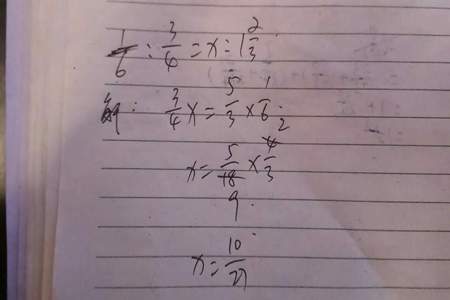 1/6 : 3/4 = x : 1 2/3
解: 3/4 x = 5/3 × 1/6
x = 5/18 × 4/3
2
9
x = 10/27